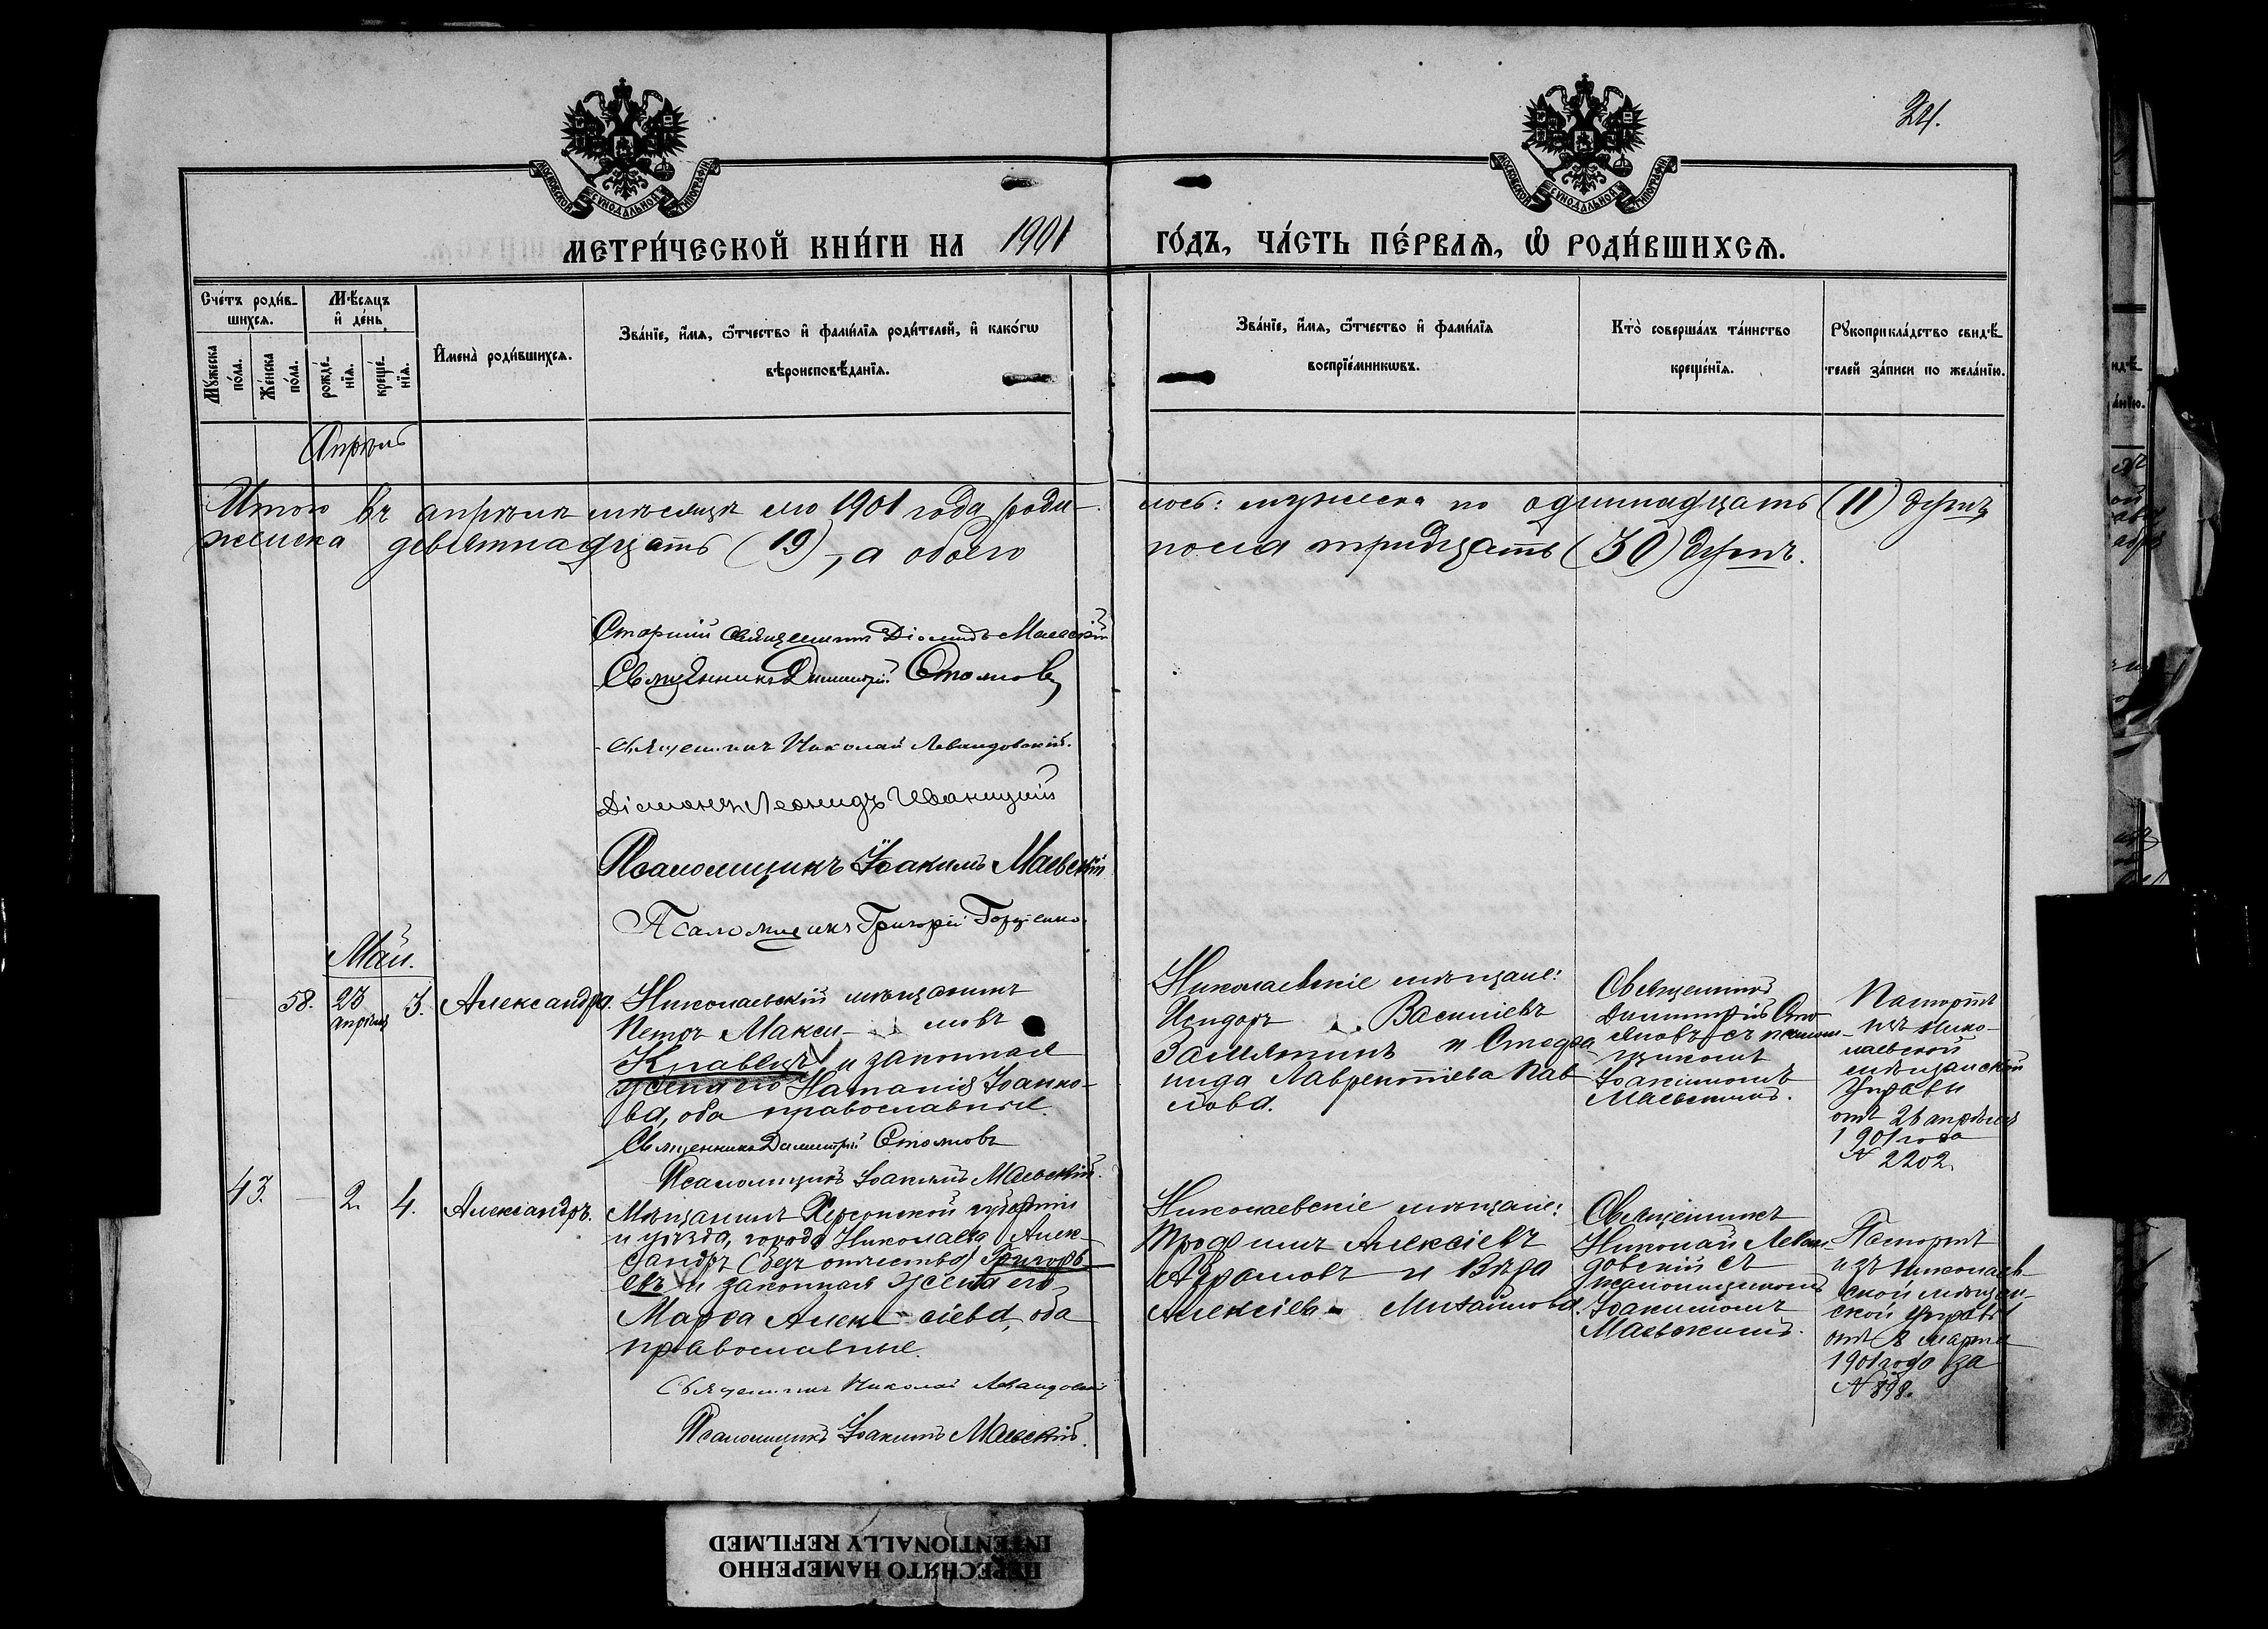 24.
МОСКОВСКОЙ СУНОДАЛЬНОЙ ТИПОГРАФІИ
МОСКОВСКОЙ СУНОДАЛЬНОЙ ТИПОГРАФІИ
МЕТРИ́ЧЕСКОЙ КНИ́ГИ НА 1901 ГО́ДЪ, ЧА́СТЬ ПЕ́РВАЯ, Ѡ РОДИ́ВШИХСЯ.
Сче́тъ роди́в-
шихся.
Мꙋ́жеска
по́ла.
Же́нска
по́ла.
Мѣ́сяцъ
и҆ де́нь
рожде́-
нїя.
креще́-
нїя.
И҆мена̀ роди́вшихся.
Зва́нїе, и҆́мя, ѻ҆́тчество и҆ фами́лїя роди́телей, и҆ како́гѡ
вѣроисповѣ́данїя.
Зва́нїе, и҆́мя, ѻ҆́тчество и҆ фами́лїя
воспрїе́мникѡвъ.
Кто̀ соверша́лъ та́инство
креще́нїя.
Рꙋкоприкла́дство свидѣ́-
телей за́писи по жела́нїю.
Апрѣль
Итого въ апрѣлѣ мѣсяцѣ сего 1901 года роди- лось: мужеска по одиннадцать (11) душъ
женска девятнадцать (19), а обоего пола тридцать (30) душъ.
Старшій священникъ Діомидъ Маевскій
Священникъ Димитрій Стояновъ
Священникъ Николай Левандовскій.
Діаконъ Леонидъ Иваницкій
Псаломщикъ Іоакимъ Маевскій
Псаломщикъ Григорій
Май.
58. 23 апрѣля 3. Александра.
Николаевскій мѣщанинъ
Петръ Макси- мовъ
Кравецъ и законная
жена его Наталія Іоанно-
ва, оба православные.
Священникъ Димитрій Стояновъ
Псаломщикъ Іоакимъ Маевскій.
Николаевскіе мѣщане:
Исидоръ Васильевъ
Замятинъ и Стефа-
нида Лаврентіева Пав-
лова.
Священникъ
Димитрій Сто-
яновъ съ псалом-
щикомъ
Іоакимомъ
Маевскимъ.
Паспортъ
изъ Нико-
лаевской
мѣщанской
Управы
отъ 26 апрѣля
1901 года
№ 2202.
43. — 2. 4. Александръ.
Мѣщанинъ Херсонской губерніи
и уѣзда, города Николаева Алек-
сандръ (безъ отчества) Григорь-
евъ и законная жена его
Марѳа Алек- сіева, оба
православные.
Священникъ Николай Левандовскій
Псаломщикъ Іоакимъ Маевскій.
Николаевскіе мѣщане:
Трофимъ Алексіевъ
Абрамовъ и Вѣра
Алексіева Михайлова.
Священникъ
Николай Леван-
довскій съ
псаломщикомъ
Іоакимомъ
Маевскимъ.
Паспортъ
изъ Николаев-
ской мѣщан-
ской Управы
отъ 8 марта
1901 года за
№ 898.
ПЕРЕСНЯТО НАМЕРЕННО
INTENTIONALLY REFILMED